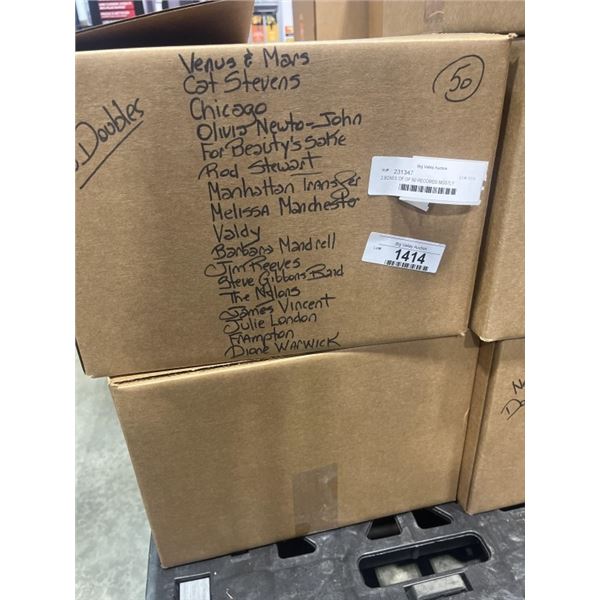 Venus & Mars
Cat Stevens
Chicago
Olivia Newto-John
For Beauty's Sake
Rod Stewart
Manhattan Transfer
Melissa Manchester
Valdy
Barbara Mandrell
Jim Reeves
Steve Gibbons Band
The Nylons
James Vincent
Julie London
Frampton
Dione Warwick
Doubles
50
Big Valley Auction
231347
2 BOXES OF OF 50 RECORDS MOSTLY
Big Valley Auction
Lot#
1414